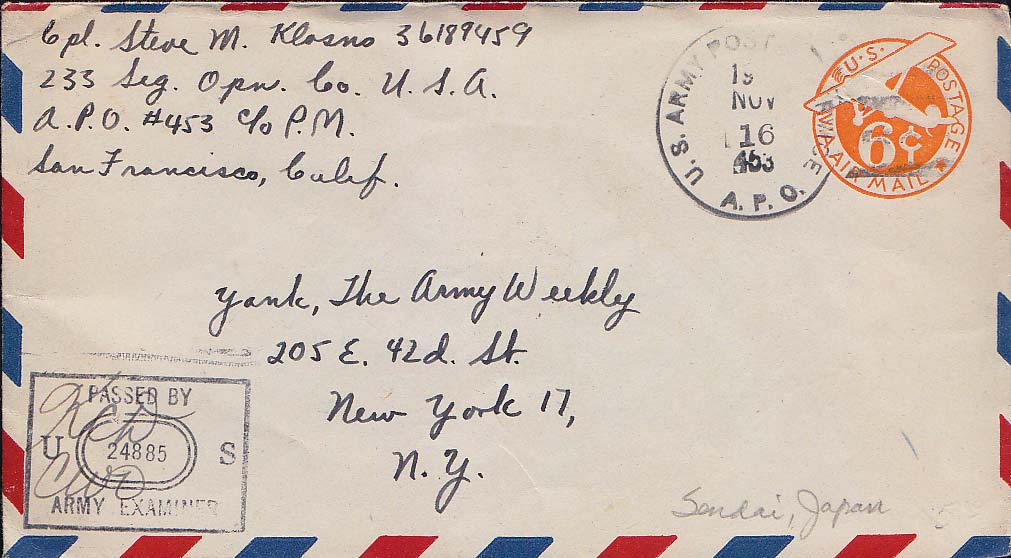 Cpl. Steve M. Klosno 36189459
233 Sig. Opn. Co. U.S.A.
A.P.O. #453 c/o P.M.
San Francisco, Calif.
U.S. ARMY POST
19
NOV
16
453
A.P.O.
U.S. POSTAGE
6¢
VIA AIR MAIL
Yank, The Army Weekly
205 E. 42d. St.
New York 17,
N.Y.
PASSED BY
U 24885 S
CWO
ARMY EXAMINER
Sendai, Japan